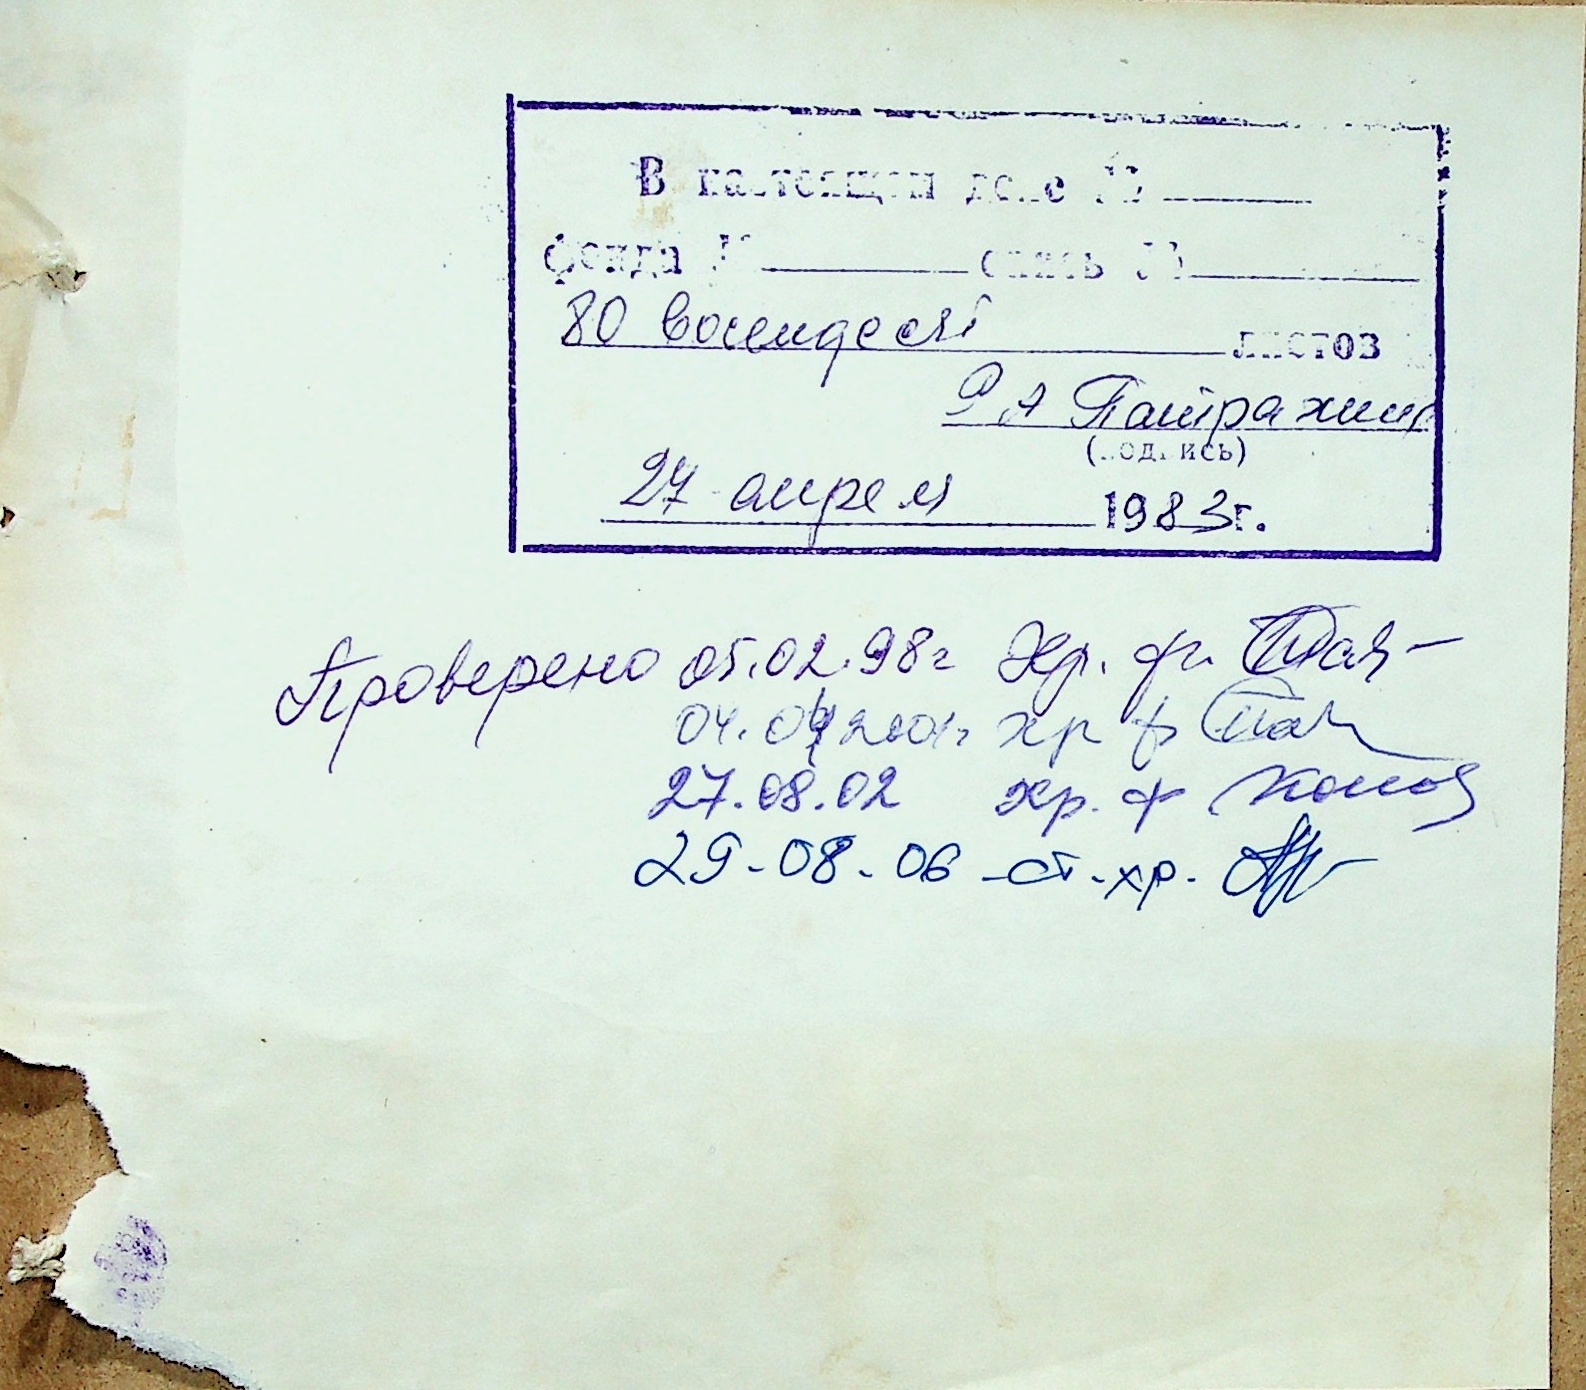 В настоящем деле №
фонда № опись №
80 восемдесят листов
Р А Патрахин
(подпись)
27 апреля 1983г.
Проверено 05.02.98г Хр. ф.
2001г хр ф
27.08.02 хр. ф
29-08-06 ст. хр.